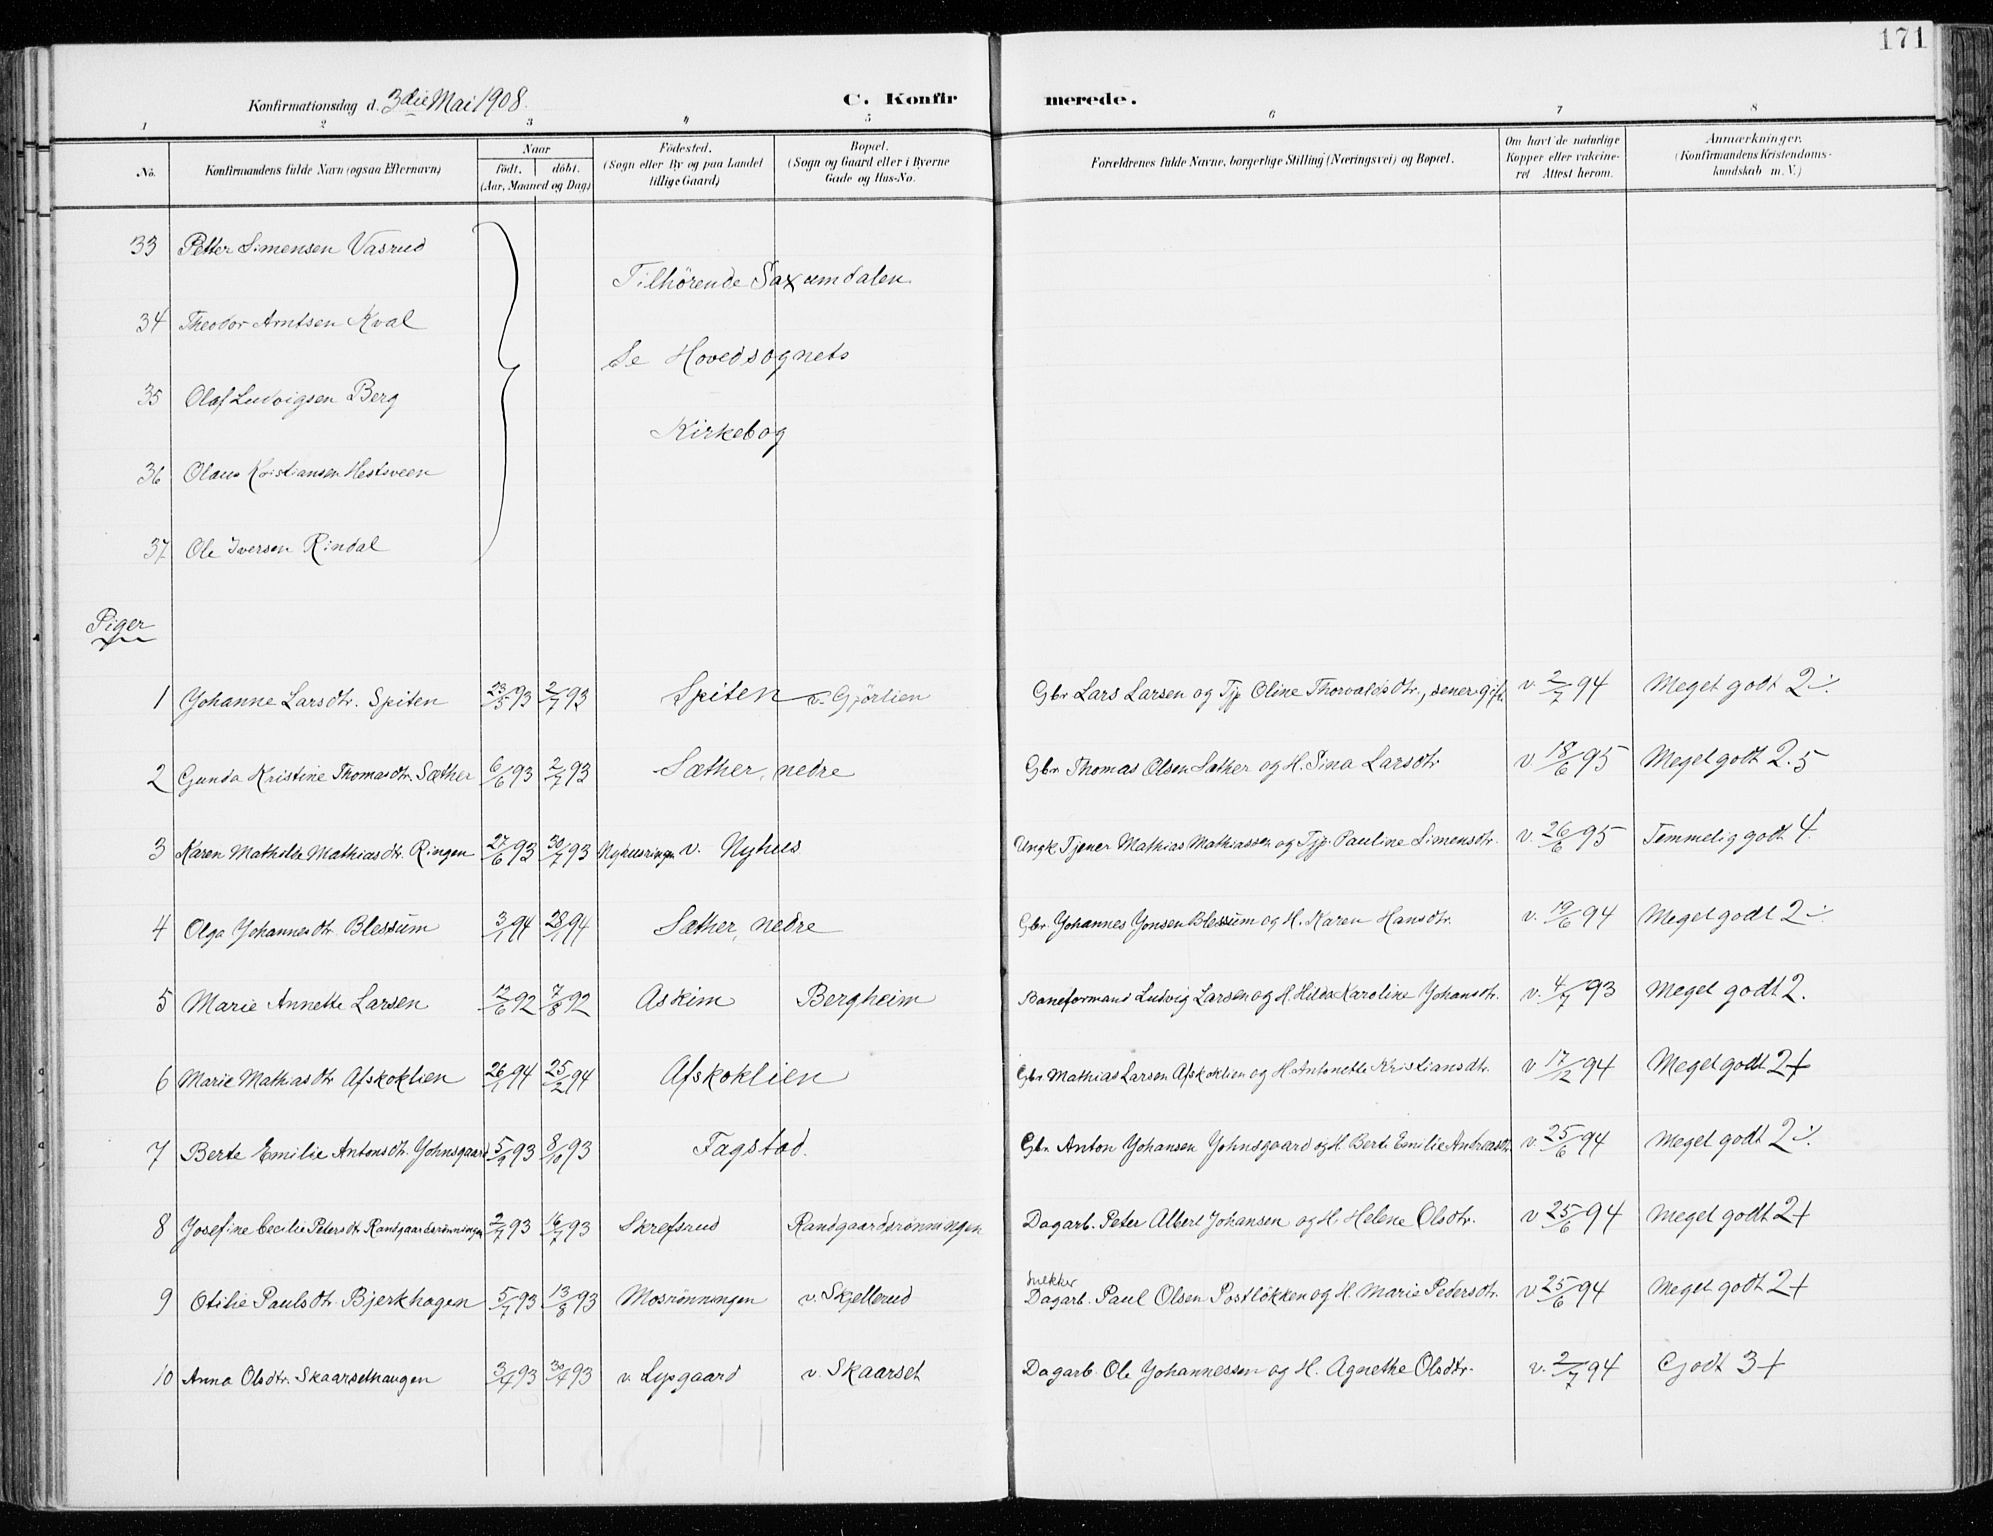 171
Konfirmationsdag d. 3die Mai 1908. C. Konfirmerede.
1 2 3 4 5 6 7 8
No. Konfirmandens fulde Navn (ogsaa Efternavn) Naar födt. döbt. (Aar, Maaned og Dag) Födested. (Sogn eller By og paa Landet tillige Gaard) Bopæl. (Sogn og Gaard eller i Byerne Gade og Hus-No. Forældrenes fulde Navne, borgerlige Stilling (Næringsvei) og Bopæl. Om havt de naturlige Kopper eller vakcineret Attest herom. Anmærkninger. (Konfirmandens Kristendomskundskab m. V.)
33 Petter Simensen Vasrud
Tilhörende Saxumdalen
34 Theodor Arntsen Kval
Se Hovedsognets
35 Olaf Ludvigsen Berg
Kirkebog
36 Olaus Kristiansen Hestsveen
37 Ole Iversen Rindal
Piger
1 Johanne Larsdtr. Spiten 23/5 93 2/7 93 Spiten v. Gjörlien Gbr Lars Larsen og Tjp Oline Thorvaldsdtr., senere gift v 2/7 94 Meget godt 2÷.
2 Gunda Kristine Thomasdtr. Sæther 6/6 93 2/7 93 Sæther, nedre Gbr Thomas Olsen Sæther og H. Sina Larsdtr v 18/6 95 Meget godt 2.5
3 Karen Mathilde Mathiasdtr. Ringen 27/6 93 30/7 93 Nyhusringen v. Nyhus Ungk Tjener Mathias Mathiassen og Tjp. Pauline Simensdtr. v. 26/6 95 Temmelig godt 4.
4 Olga Johannesdtr. Blessum 3/1 94 28/1 94 Sæther, nedre Gbr. Johannes Jonsen Blessum og H. Karen Hansdtr. v. 19/6 94 Meget godt 2÷
5 Marie Annette Larsen 12/6 92 7/8 92 Askim Bergheim Baneformand Ludvig Larsen og H. Hilda Karoline Johansdtr. v. 4/7 93 Meget godt 2.
6 Marie Mathiasdtr Afskoklien 26/1 94 25/2 94 Afskoklien Gbr Mathias Larsen Afskoklien og H. Antonette Kristiansdtr. v 17/12 94 Meget godt 2+
7 Berte Emilie Antonsdtr. Johnsgaard 5/9 93 8/10 93 Fagstad. Gbr. Anton Johansen Johnsgaard og H. Berte Emilie Andreasdtr v. 25/6 94 Meget godt 2÷.
8 Josefine Cecilie Petersdtr Randgaardsrønningen 2/7 93 16/7 93 Skrefsrud Randgaardsrønningen Dagarb. Peter Albert Johansen og H. Helene Olsdtr. v 25/6 94 Meget godt 2+
9 Otilie Paulsdtr. Bjerkhagen 5/7 93 13/8 93 Mosrönningen v. Skjellerud Snekker Dagarb. Paul Olsen Postløkken og H. Marie Pedersdtr. v 25/6 94 Meget godt 2+
10 Anna Olsdtr. Skaarsethaugen 3/4 93 30/4 93 v. Lysgaard v. Skaarset Dagarb. Ole Johannessen og H. Agnethe Olsdtr. v. 2/7 94 Godt 3+